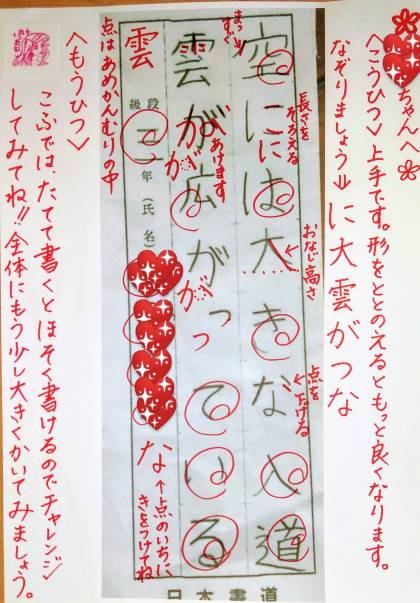 ちゃんへ
〈こうひつ〉上手です。形をととのえるともっと良くなります。
なぞりましょう⇒に大雲がつな
長さをそろえる
おなじ高さ
点を下げる
まっすぐ
空には大きな入道
にに
雲が広がっている
あけます
がが
が
級段
二年(氏名)
な←点のいちにきをつけてね
日本書道
雲
点はあめかんむりの中
〈もうひつ〉
こふでは、たてて書くとほそく書けるのでチャレンジ
してみてね!!全体にもう少し大きくかいてみましょう。